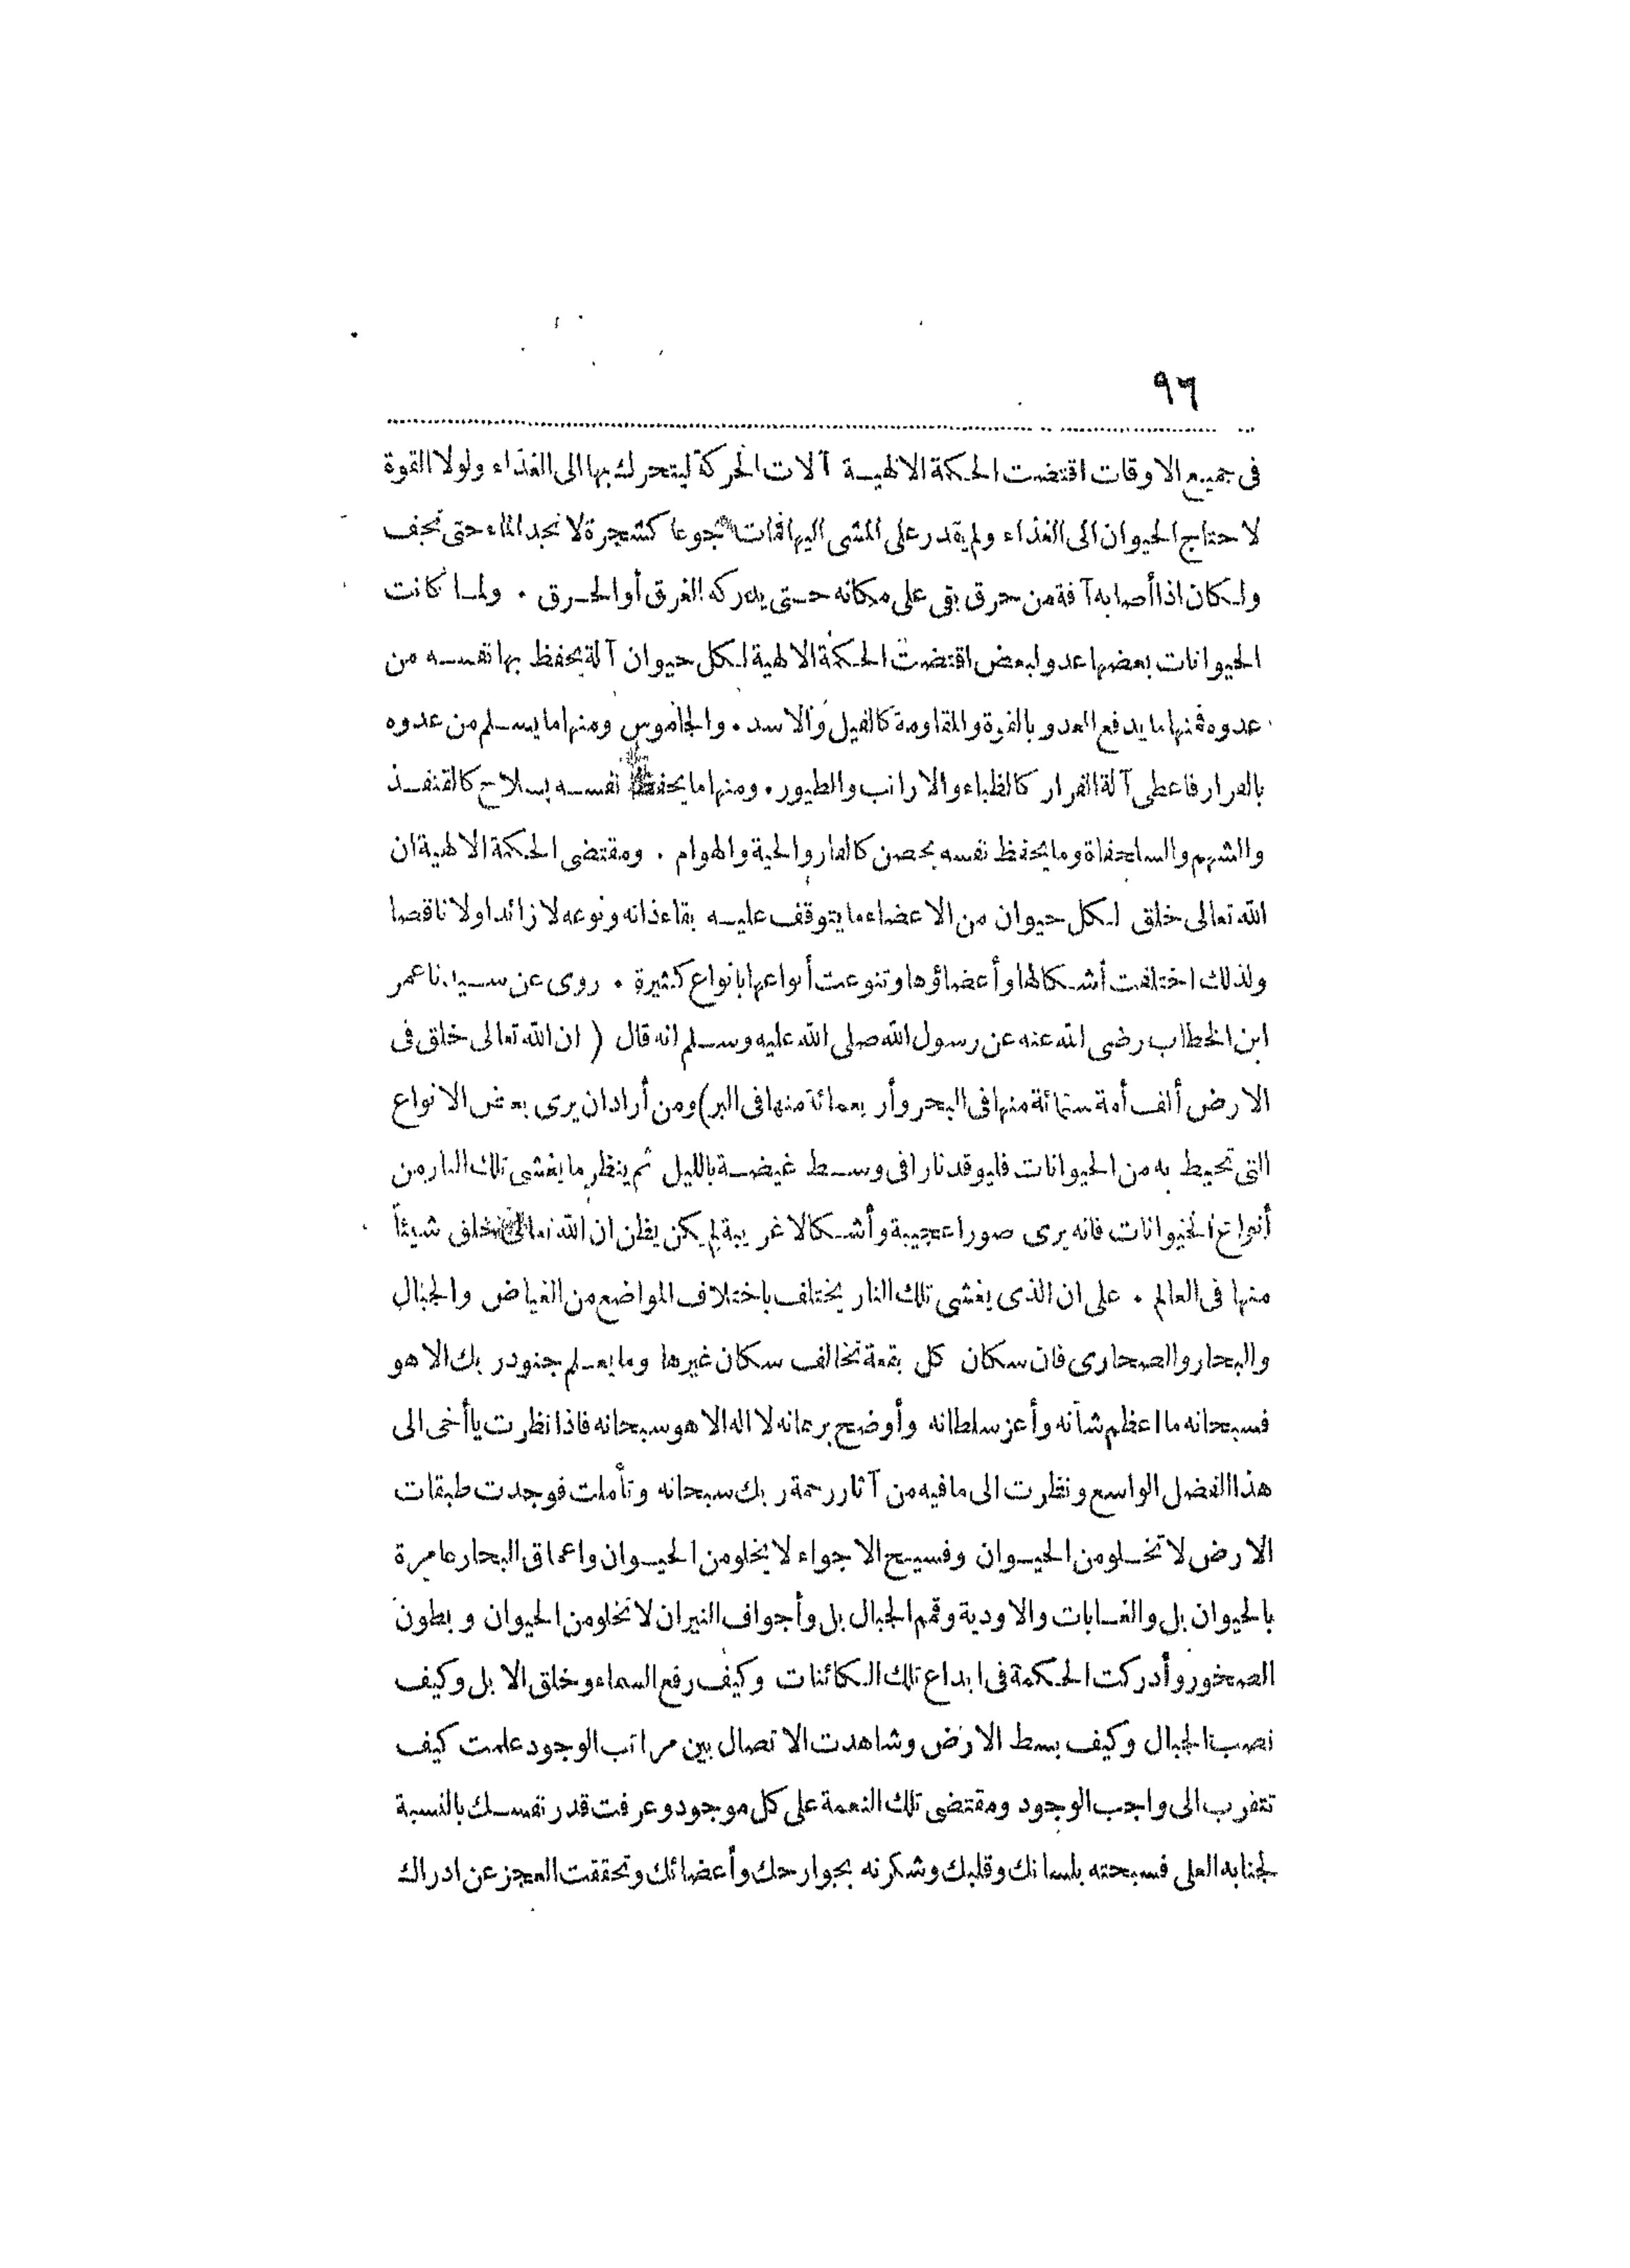 ٩٦
فى جميع الاوقات اقتضت الحكمة الالهية آلات الحركة ليتحرك بها الى الغذاء ولولا القوة
لاحتاج الحيوان الى الغذاء ولم يقدر على المشى اليها فات جوعا كشجرة لا تجد الماء حتى تجف
ولكان اذا أصابه آفة من حرق بقى على مكانه حتى يدركه الغرق أو الحرق . ولما كانت
الحيوانات بعضها عدو لبعض اقتضت الحكمة الالهية لكل حيوان آلة يحفظ بها نفسه من
عدوه فمنها ما يدفع العدو بالقوة والمقاومة كالفيل والاسد . والجاموس ومنها ما يسلم من عدوه
بالفرار فاعطى آلة الفرار كالظباء والارانب والطيور . ومنها ما يحفظ نفسه بسلاح كالقنفذ
والشهم والسلحفاة وما يحفظ نفسه بحصن كالفار والحية والهوام . ومقتضى الحكمة الالهية ان
الله تعالى خلق لكل حيوان من الاعضاء ما يتوقف عليه بقاء ذاته ونوعه لا زائدا ولا ناقصا
ولذلك اختلفت أشكالها وأعضاؤها وتنوعت أنواعها بانواع كثيرة . روى عن سيدنا عمر
ابن الخطاب رضى الله عنه عن رسول الله صلى الله عليه وسلم انه قال ( ان الله تعالى خلق فى
الارض ألف أمة ستمائة منها فى البحر وأربعمائة منها فى البر) ومن أراد ان يرى بعض الانواع
التى تحيط به من الحيوانات فليوقد نارا فى وسط غيضة بالليل ثم ينظر ما يغشى تلك النار من
أنواع الحيوانات فانه يرى صورا عجيبة وأشكالا غريبة لم يكن يظن ان الله تعالى خلق شيئاً
منها فى العالم . على ان الذى يغشى تلك النار يختلف باختلاف المواضع من الغياض والجبال
والبحار والصحارى فان سكان كل بقعة تخالف سكان غيرها وما يعلم جنود ربك الا هو
فسبحانه ما اعظم شأنه وأعز سلطانه وأوضح برهانه لا اله الا هو سبحانه فاذا نظرت يا أخى الى
هذا الفضل الواسع ونظرت الى ما فيه من آثار رحمة ربك سبحانه وتأملت فوجدت طبقات
الارض لا تخلو من الحيوان وفسيح الاجواء لا يخلو من الحيوان واعماق البحار عامرة
بالحيوان بل والغابات والاودية وقمم الجبال بل وأجواف النيران لا تخلو من الحيوان وبطون
الصخور وأدركت الحكمة فى ابداع تلك الكائنات وكيف رفع السماء وخلق الابل وكيف
نصب الجبال وكيف بسط الارض وشاهدت الاتصال بين مراتب الوجود علمت كيف
تتقرب الى واجب الوجود ومقتضى تلك النعمة على كل موجود وعرفت قدر نفسك بالنسبة
لجنابه العلى فسبحته بلسانك وقلبك وشكرته بجوارحك وأعضائك وتحققت العجز عن ادراك